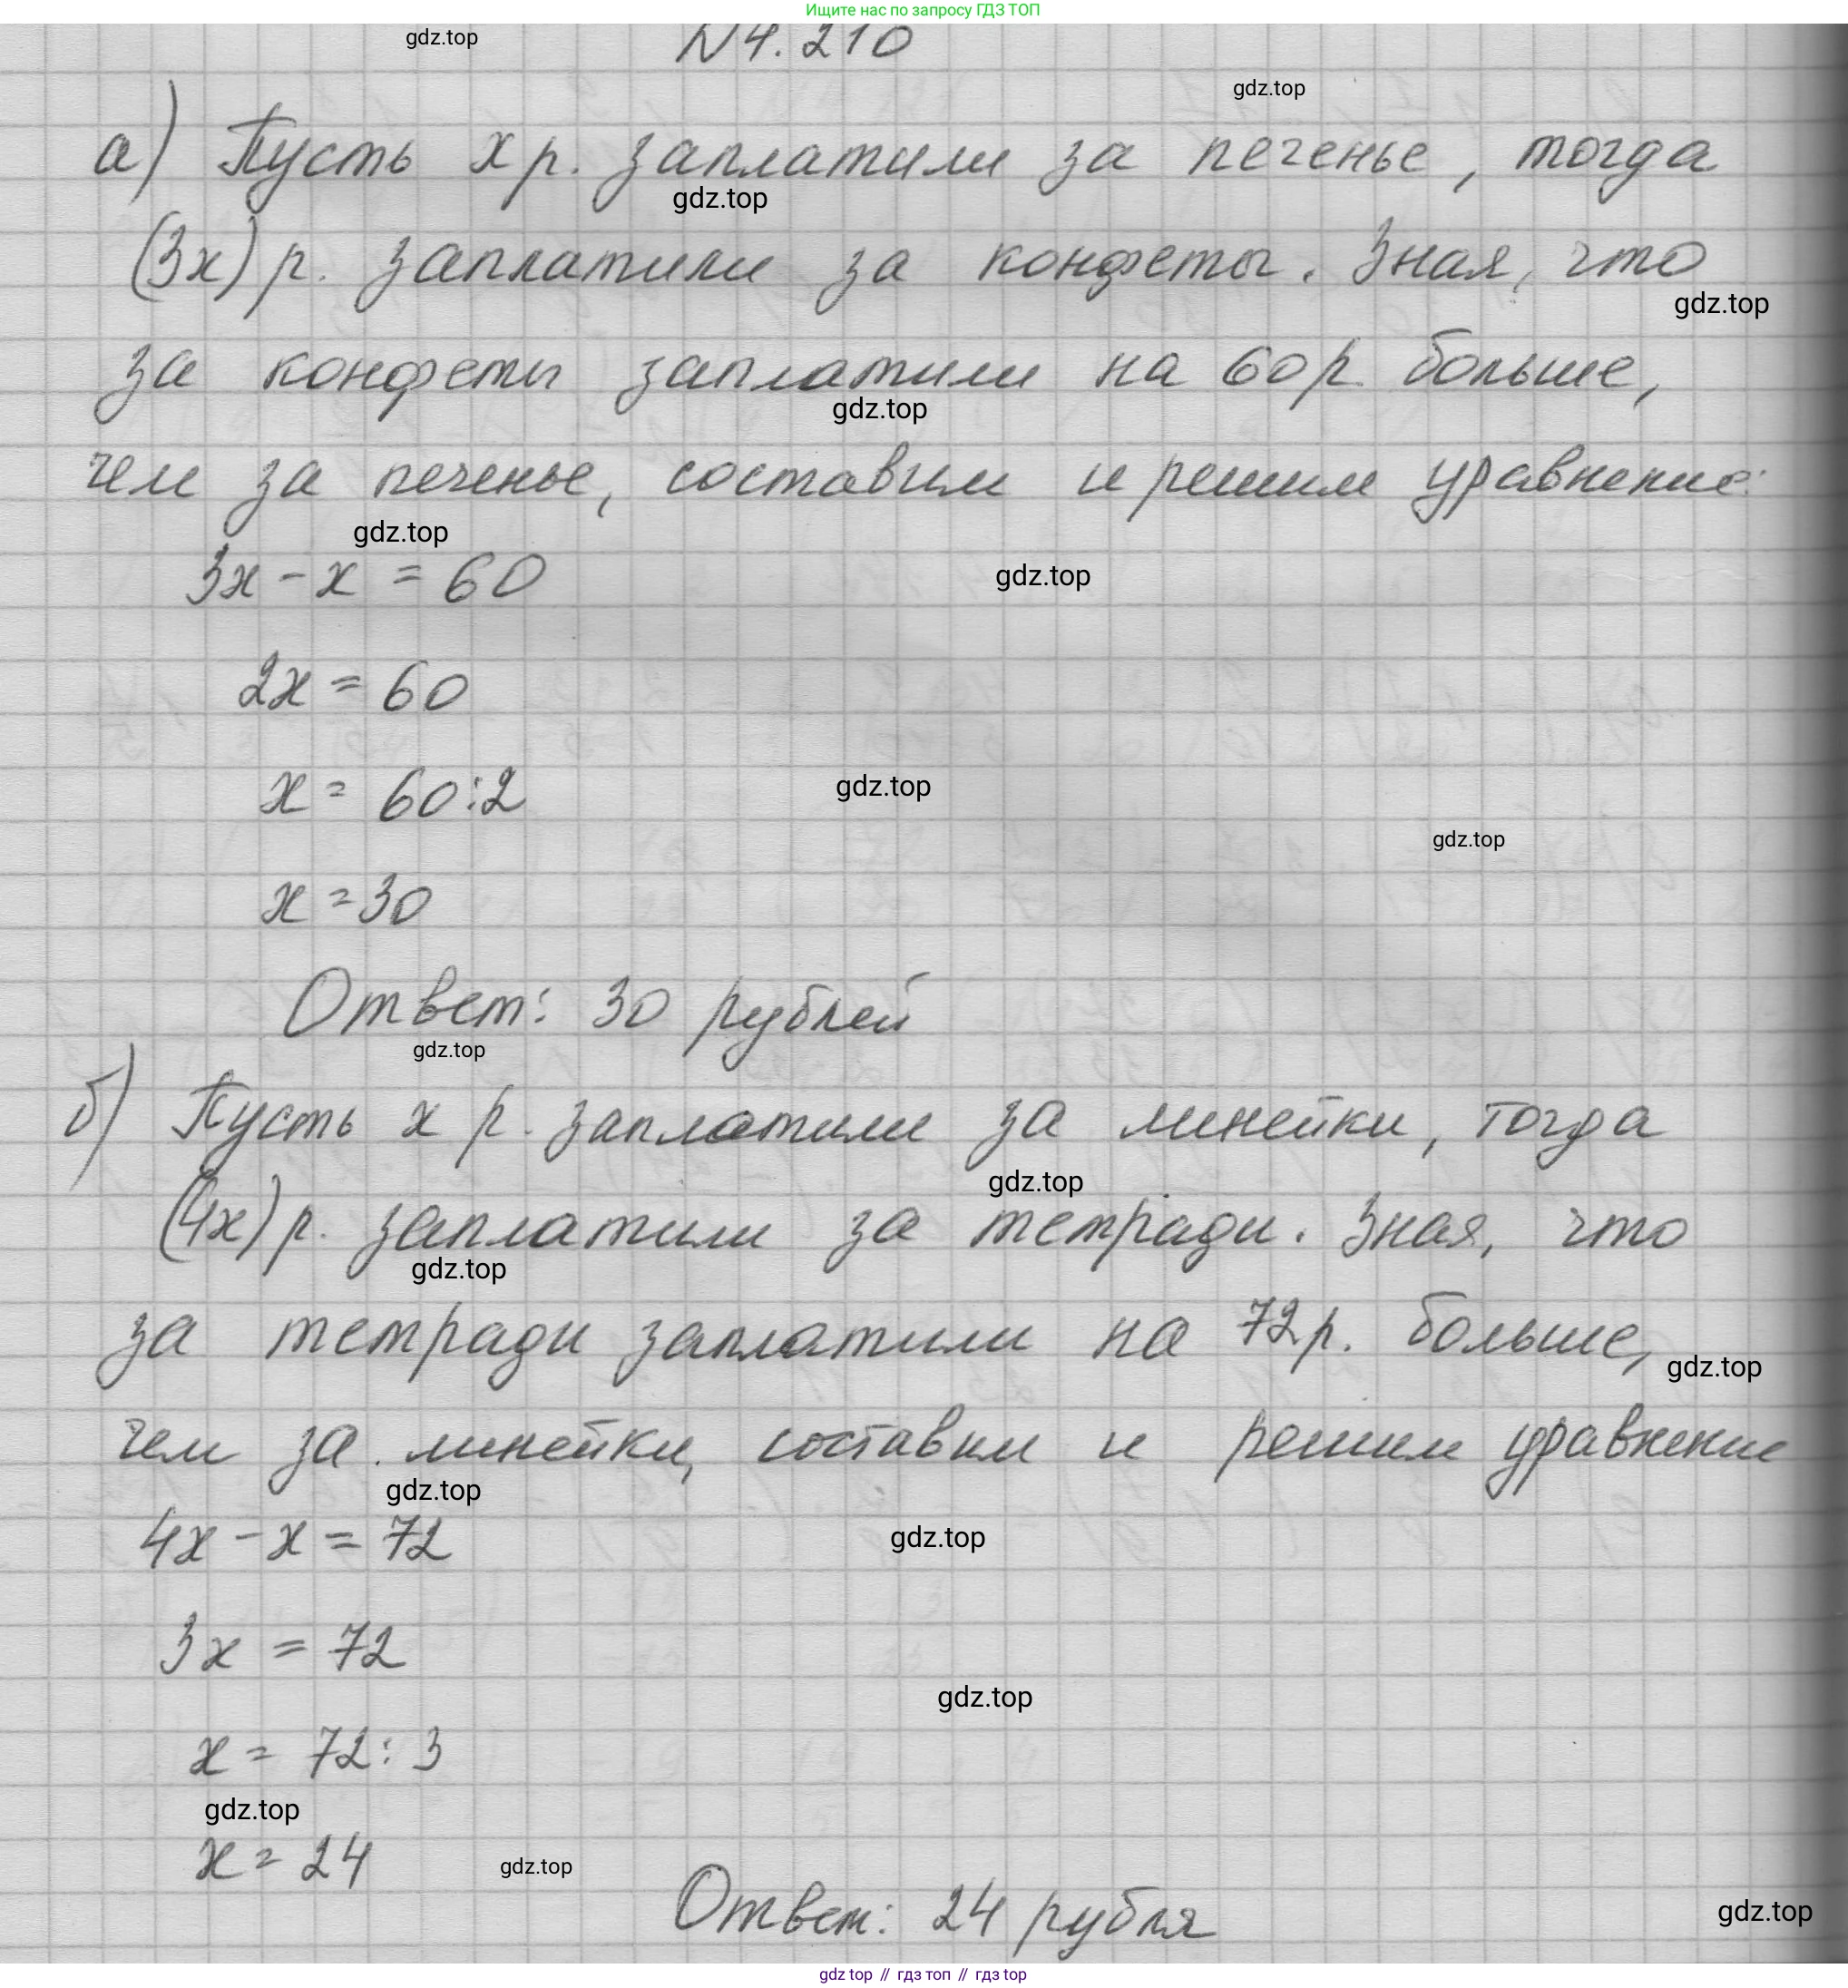 Ищите нас по запросу ГДЗ ТОП
N 4.210
gdz.top
gdz.top
а) Пусть x р. заплатили за печенье, тогда
gdz.top
(3x) р. заплатили за конфеты. Зная, что
gdz.top
за конфеты заплатили на 60 р. больше,
gdz.top
чем за печенье, составим и решим уравнение:
gdz.top
3x - x = 60
gdz.top
2x = 60
x = 60:2
gdz.top
gdz.top
x = 30
Ответ: 30 рублей
gdz.top
б) Пусть x р. заплатили за линейки, тогда
gdz.top
(4x) р. заплатили за тетради. Зная, что
gdz.top
за тетради заплатили на 72 р. больше,
gdz.top
чем за линейки, составим и решим уравнение
gdz.top
4x - x = 72
gdz.top
3x = 72
gdz.top
x = 72 : 3
gdz.top
x = 24
gdz.top
Ответ: 24 рубля
gdz.top
gdz top // гдз топ // гдз top